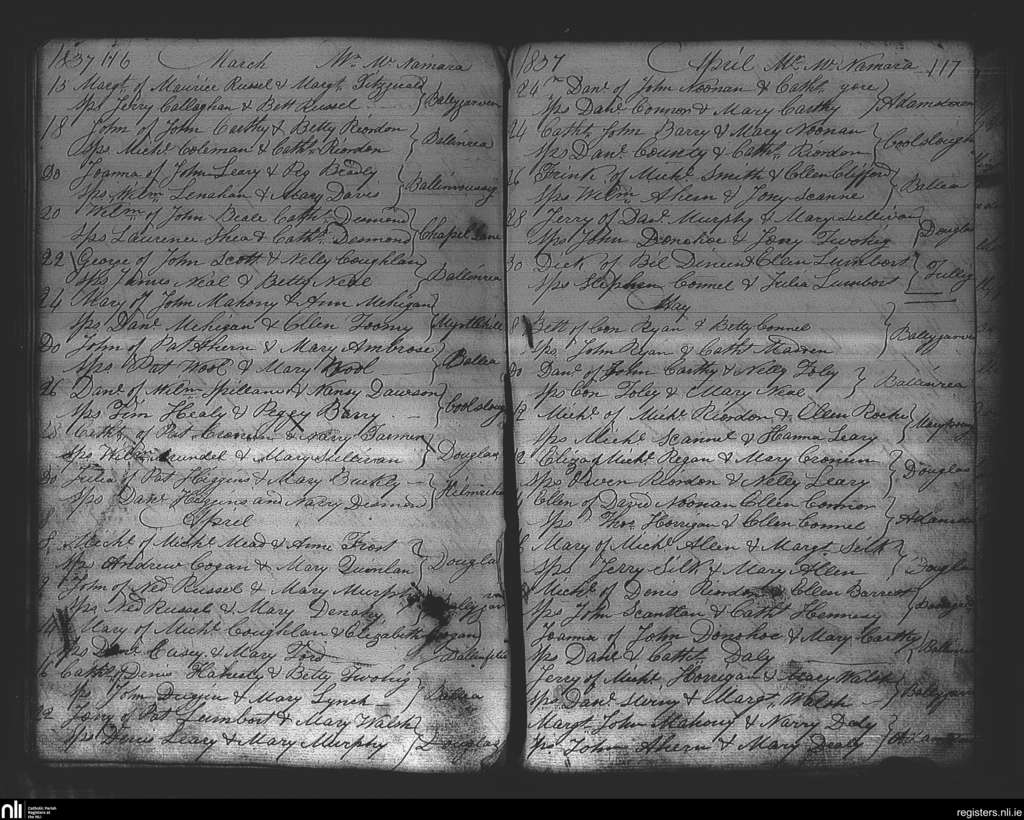 1837 116 March Mr. McNamara
15 Margt. of Maurice Russel & Margt. Fitzgerald
Sps Jerry Callaghan & Bett Russel Ballygarvan
18 John of John Carthy & Betty Riordon
Sps. Michl. Coleman & Cathn. Riordon Ballinrea
Do Joanna of John Leary & Peg Bradly
Sps. Wilm. Lenahan & Mary Davis
20 Wilm. of John Beale Cathn. Desmond
Sps Laurence Shea & Cathn. Desmond Chapel Lane
22 George of John Scott & Nelly Coughlan
Sps James Neal & Betty Neal Ballinrea
24 Mary of John Mahony & Ann Mehigan
Sps Danl. Mehigan & Ellen Toomy
Do John of Pat Ahern & Mary Ambrose
Sps Pat Wool & Mary Wool Ballea
26 Danl. of Wilm. Spillane & Nancy Dawson
Sps Tim Healy & Peggy Barry
28 Cathn. of Pat Cronin & Mary
Sps & Mary Sullivan Douglas
30 Julia of Pat Higgins & Mary Buckly
Sps Danl. Higgins and Mary Desmond
April
8 Michl. of Michl. Mead & Anne Frost
Sps Andrew Cogan & Mary Quinlan Douglas
John of Ned Russel & Mary Murphy
Sps Ned Russel & Mary
Mary of Michl. Coughlan & Elizabeth Cogan
Sps Danl. Casey & Mary Ford
16 Cathn. of Denis & Betty Twohig
Sps John Duggin & Mary Lynch Ballea
22 Jerry of Pat Lumbort & Mary Walsh
Sps Denis Leary & Mary Murphy Douglas
1837 April Mr. McNamara 117
24th Danl. of John Noonan & Cathn.
Sps Danl. Connor & Mary Carthy
24 Cathn. John Barry & Mary Noonan
Sps Danl. & Cathn. Riordon
26 of Michl. Smith & Ellen Clifford
Sps Wilm. Ahern & Ballea
28 Jerry of Danl. Murphy & Mary Sullivan
Sps John Donohoe & Twohig Douglas
30 Dick of Bil & Ellen Lumbort
Sps Stephen Connel & Julia Lumbort
May
8 Bett of Con Ryan & Betty Connel
Sps. John Ryan & Cathn. Madden
Do Danl. of John Carthy & Nelly Foly
Sps Con Foley & Mary Neal Ballinrea
12 Michl. of Michl. Riordon & Ellen Roche
Sps Michl. Scannel & Hanna Leary
12 Eliza of Michl. Regan & Mary Cronin
Sps Owen Riordon & Nelly Leary Douglas
Ellen of David Noonan Ellen Connor
Sps Thos. Horrigan & Ellen Connel
Mary of Michl. Allen & Margt. Silk
Sps Jerry Silk & Mary Allen Douglas
Michl. of Denis Riordon & Ellen Barrett
Sps John Scantlan & Cathn. Hennesy
Joanna of John Donohoe & Mary Carthy
Sps Danl. & Cathn. Daly
Jerry of Michl. Horrigan & Mary Walsh
Sps Danl. & Margt. Walsh
Margt. John Mahony & Narry Daly
Sps John Ahern & Mary Dealy
nli
Catholic Parish
Registers at
the NLI
registers.nli.ie